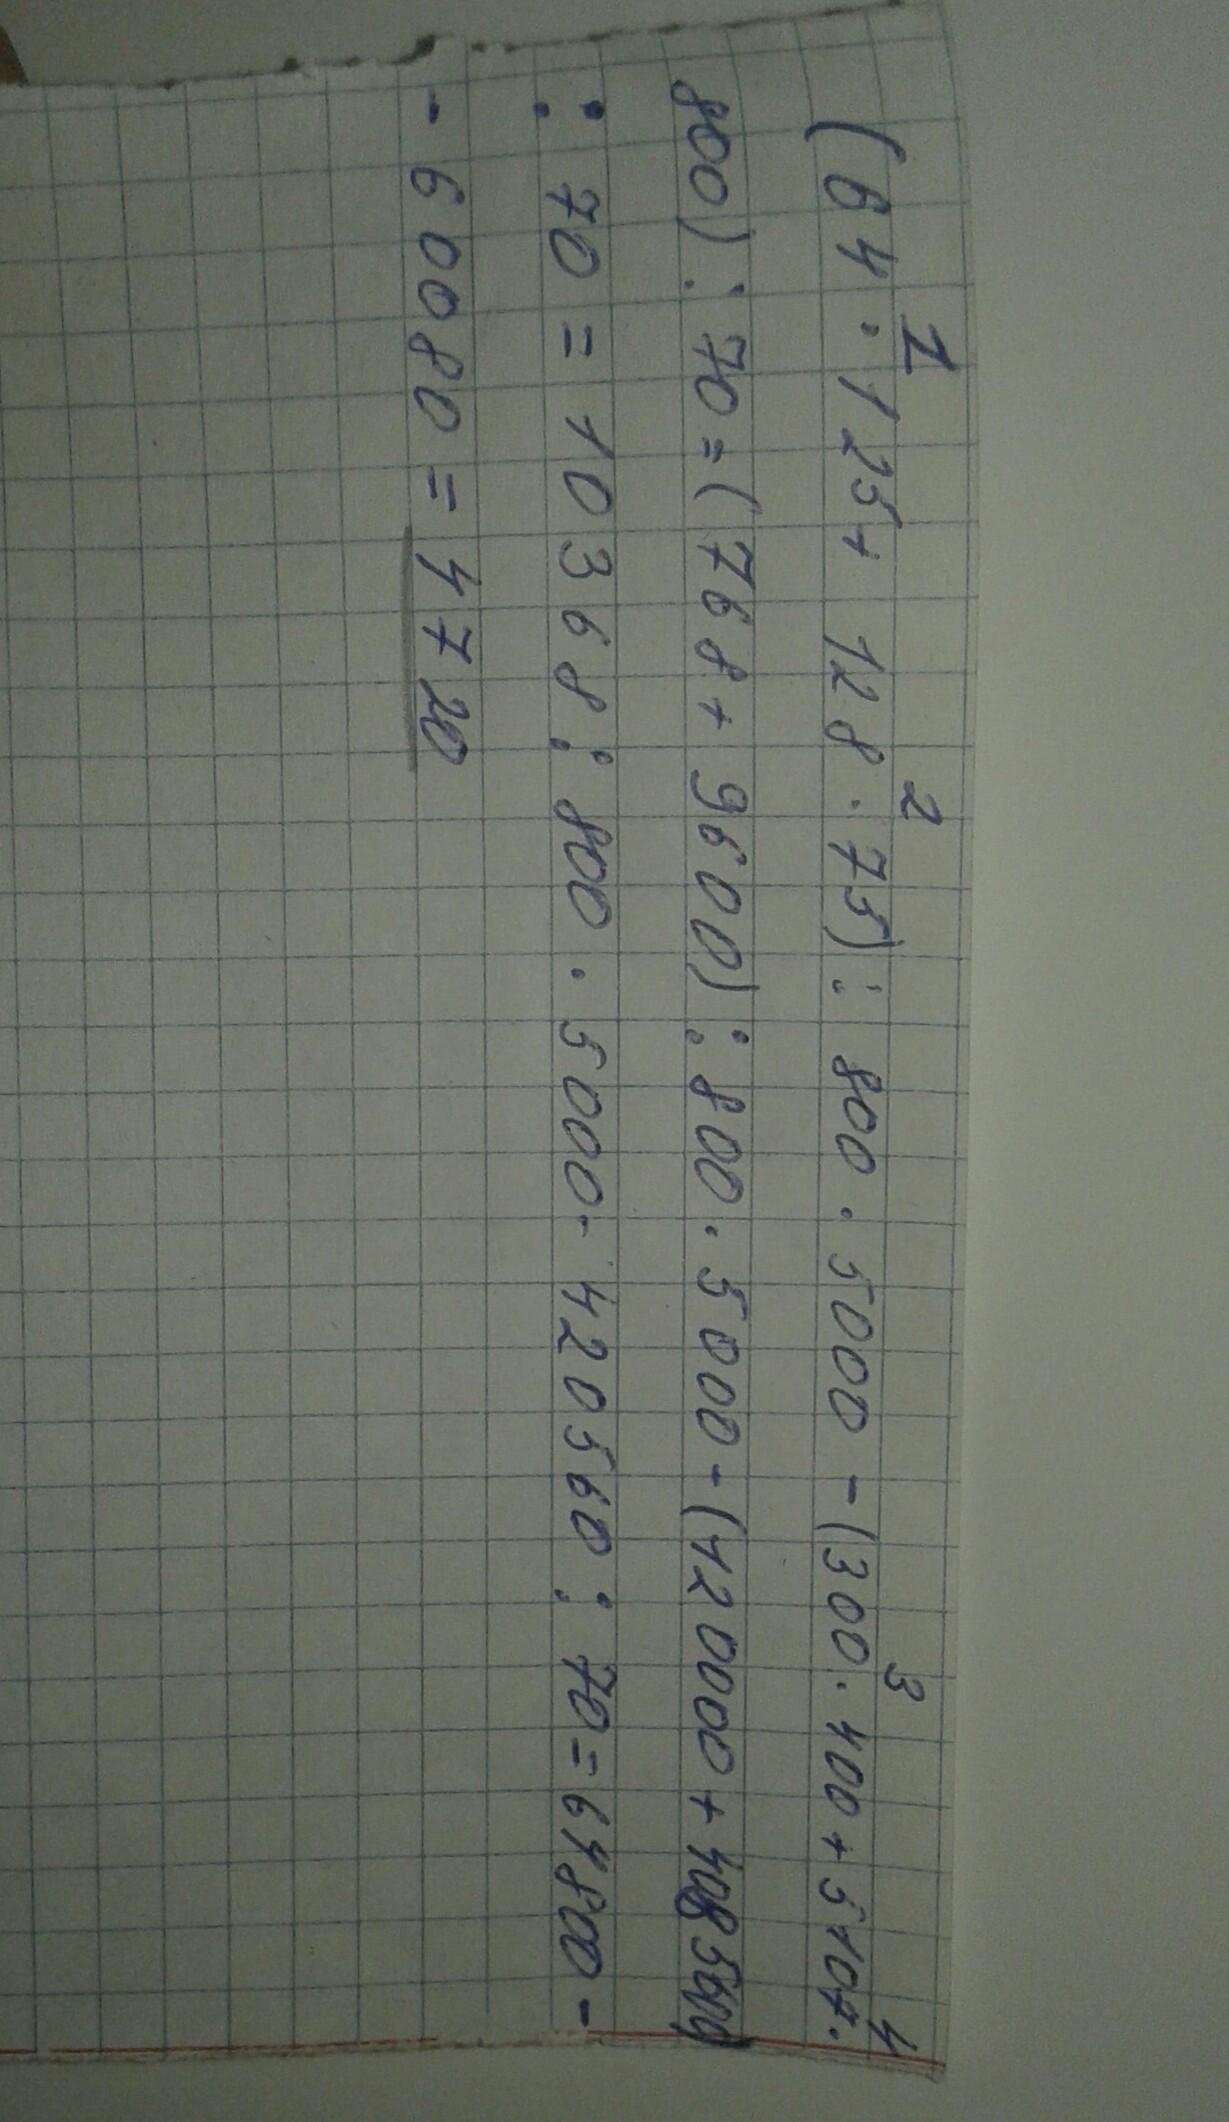 1 2 3 4
(64·125+128·75):800·5000-(300·400+5107·
800):70=(768+9600):800·5000-(120000+4085600)
:70=10368:800·5000-420560:70=64800-
-60080=4720